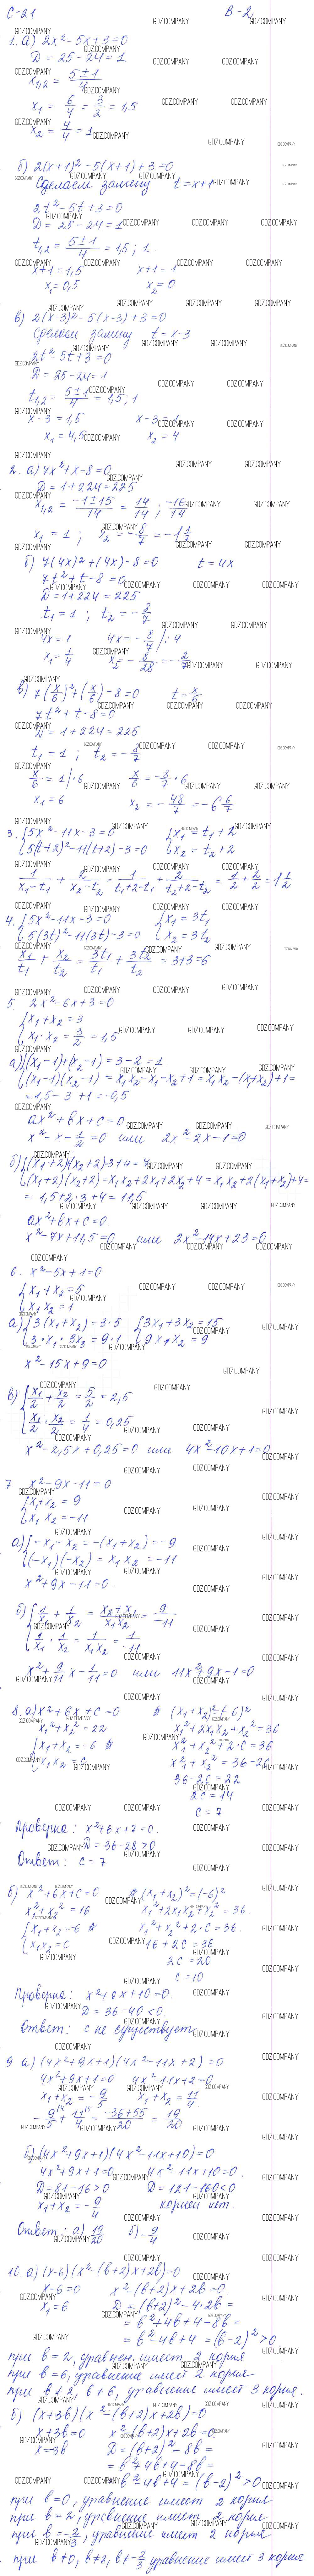 С-21 В-2
1. а) 2x² - 5x + 3 = 0
D = 25 - 24 = 1
x₁,₂ = (5 ± 1)/4
x₁ = 6/4 = 3/2 = 1,5
x₂ = 4/4 = 1
б) 2(x+1)² - 5(x+1) + 3 = 0
Сделаем замену t = x+1
2t² - 5t + 3 = 0
D = 25 - 24 = 1
t₁,₂ = (5 ± 1)/4 = 1,5 ; 1
x+1 = 1,5 x+1 = 1
x₁ = 0,5 x₂ = 0
в) 2(x-3)² - 5(x-3) + 3 = 0
Сделаем замену t = x-3
2t² - 5t + 3 = 0
D = 25 - 24 = 1
t₁,₂ = (5 ± 1)/4 = 1,5 ; 1
x-3 = 1,5 x-3 = 1
x₁ = 4,5 x₂ = 4
2. а) 7x² + x - 8 = 0
D = 1 + 224 = 225
x₁,₂ = (-1 ± 15)/14 = 14/14 ; -16/14
x₁ = 1 ; x₂ = -8/7 = -1 1/7
б) 7(4x)² + (4x) - 8 = 0 t = 4x
7t² + t - 8 = 0
D = 1 + 224 = 225
t₁ = 1 ; t₂ = -8/7
4x = 1 4x = -8/7 /: 4
x₁ = 1/4 x₂ = -8/28 = -2/7
в) 7(x/6)² + (x/6) - 8 = 0 t = x/6
7t² + t - 8 = 0
D = 1 + 224 = 225
t₁ = 1 ; t₂ = -8/7
x/6 = 1 /·6 x/6 = -8/7 · 6
x₁ = 6 x₂ = -48/7 = -6 6/7
3. {5x² - 11x - 3 = 0 {x₁ = t₁ + 2
{5(t+2)² - 11(t+2) - 3 = 0 {x₂ = t₂ + 2
1/(x₁-t₁) + 2/(x₂-t₂) = 1/(t₁+2-t₁) + 2/(t₂+2-t₂) = 1/2 + 2/2 = 1 1/2
4. {5x² - 11x - 3 = 0 {x₁ = 3t₁
{5(3t)² - 11(3t) - 3 = 0 {x₂ = 3t₂
x₁/t₁ + x₂/t₂ = 3t₁/t₁ + 3t₂/t₂ = 3+3 = 6
5. 2x² - 6x + 3 = 0
{x₁ + x₂ = 3
{x₁ · x₂ = 3/2 = 1,5
а) {(x₁-1)+(x₂-1) = 3-2 = 1
{(x₁-1)(x₂-1) = x₁x₂ - x₁ - x₂ + 1 = x₁x₂ - (x₁+x₂) + 1 =
= 1,5 - 3 + 1 = -0,5
ax² + bx + c = 0
x² - x - 1/2 = 0 или 2x² - 2x - 1 = 0
б) {(x₁+2)+(x₂+2) = 3+4 = 7
{(x₁+2)(x₂+2) = x₁x₂ + 2x₁ + 2x₂ + 4 = x₁x₂ + 2(x₁+x₂) + 4 =
= 1,5 + 2·3 + 4 = 11,5
ax² + bx + c = 0.
x² - 7x + 11,5 = 0 или 2x² - 14x + 23 = 0
6. x² - 5x + 1 = 0
{x₁ + x₂ = 5
{x₁x₂ = 1
а) {3(x₁+x₂) = 3·5 {3x₁ + 3x₂ = 15
{3·x₁·3x₂ = 9·1 {9x₁x₂ = 9
x² - 15x + 9 = 0
в) {x₁/2 + x₂/2 = 5/2 = 2,5
{x₁/2 · x₂/2 = 1/4 = 0,25
x² - 2,5x + 0,25 = 0 или 4x² - 10x + 1 = 0
7 x² - 9x - 11 = 0
{x₁ + x₂ = 9
{x₁x₂ = -11
а) {-x₁ - x₂ = -(x₁+x₂) = -9
{(-x₁)(-x₂) = x₁x₂ = -11
x² + 9x - 11 = 0.
б) {1/x₁ + 1/x₂ = (x₂+x₁)/x₁x₂ = 9/-11
{1/x₁ · 1/x₂ = 1/x₁x₂ = 1/-11
x² + 9/11 x - 1/11 = 0 или 11x² + 9x - 1 = 0
8. а) x² + 6x + c = 0 (x₁+x₂)² = (-6)²
x₁² + x₂² = 22 x₁² + 2x₁x₂ + x₂² = 36
{x₁ + x₂ = -6 x₁² + x₂² + 2·c = 36
{x₁x₂ = c x₁² + x₂² = 36 - 2c
36 - 2c = 22
2c = 14
c = 7
Проверка: x² + 6x + 7 = 0.
D = 36 - 28 > 0
Ответ: c = 7
б) x² + 6x + c = 0 (x₁+x₂)² = (-6)²
x₁² + x₂² = 16 x₁² + 2x₁x₂ + x₂² = 36.
{x₁ + x₂ = -6 x₁² + x₂² + 2·c = 36.
{x₁x₂ = c 16 + 2c = 36
2c = 20
c = 10
Проверка: x² + 6x + 10 = 0.
D = 36 - 40 < 0.
Ответ: c не существует
9 а) (4x² + 9x + 1)(4x² - 11x + 2) = 0
4x² + 9x + 1 = 0 4x² - 11x + 2 = 0
x₁ + x₂ = -9/5 x₁ + x₂ = 11/4
-9/5 + 11/4 = (-36+55)/20 = 19/20
б) (4x² + 9x + 1)(4x² - 11x + 10) = 0
4x² + 9x + 1 = 0 4x² - 11x + 10 = 0.
D = 81 - 16 > 0 D = 121 - 160 < 0
x₁ + x₂ = -9/4 корней нет.
Ответ: а) 19/20 б) -9/4
10. а) (x-6)(x² - (b+2)x + 2b) = 0
x - 6 = 0 x² - (b+2)x + 2b = 0
x₁ = 6 D = (b+2)² - 4·2b =
= b² + 4b + 4 - 8b =
= b² - 4b + 4 = (b-2)² > 0
при b = 2, уравнен. имеет 2 корня
при b = 6, уравнение имеет 2 корня
при b ≠ 2, b ≠ 6, уравнение имеет 3 корня.
б) (x+3b)(x² - (b+2)x + 2b) = 0
x + 3b = 0 x² - (b+2)x + 2b = 0.
x = -3b D = (b+2)² - 8b =
= b² + 4b + 4 - 8b =
= b² - 4b + 4 = (b-2)² > 0
при b = 0, уравнение имеет 2 корня
при b = 2, уравнение имеет 2 корня
при b = -2/3, уравнение имеет 2 корня
при b ≠ 0, b ≠ 2, b ≠ -2/3 уравнение имеет 3 корня.
GDZ.COMPANY